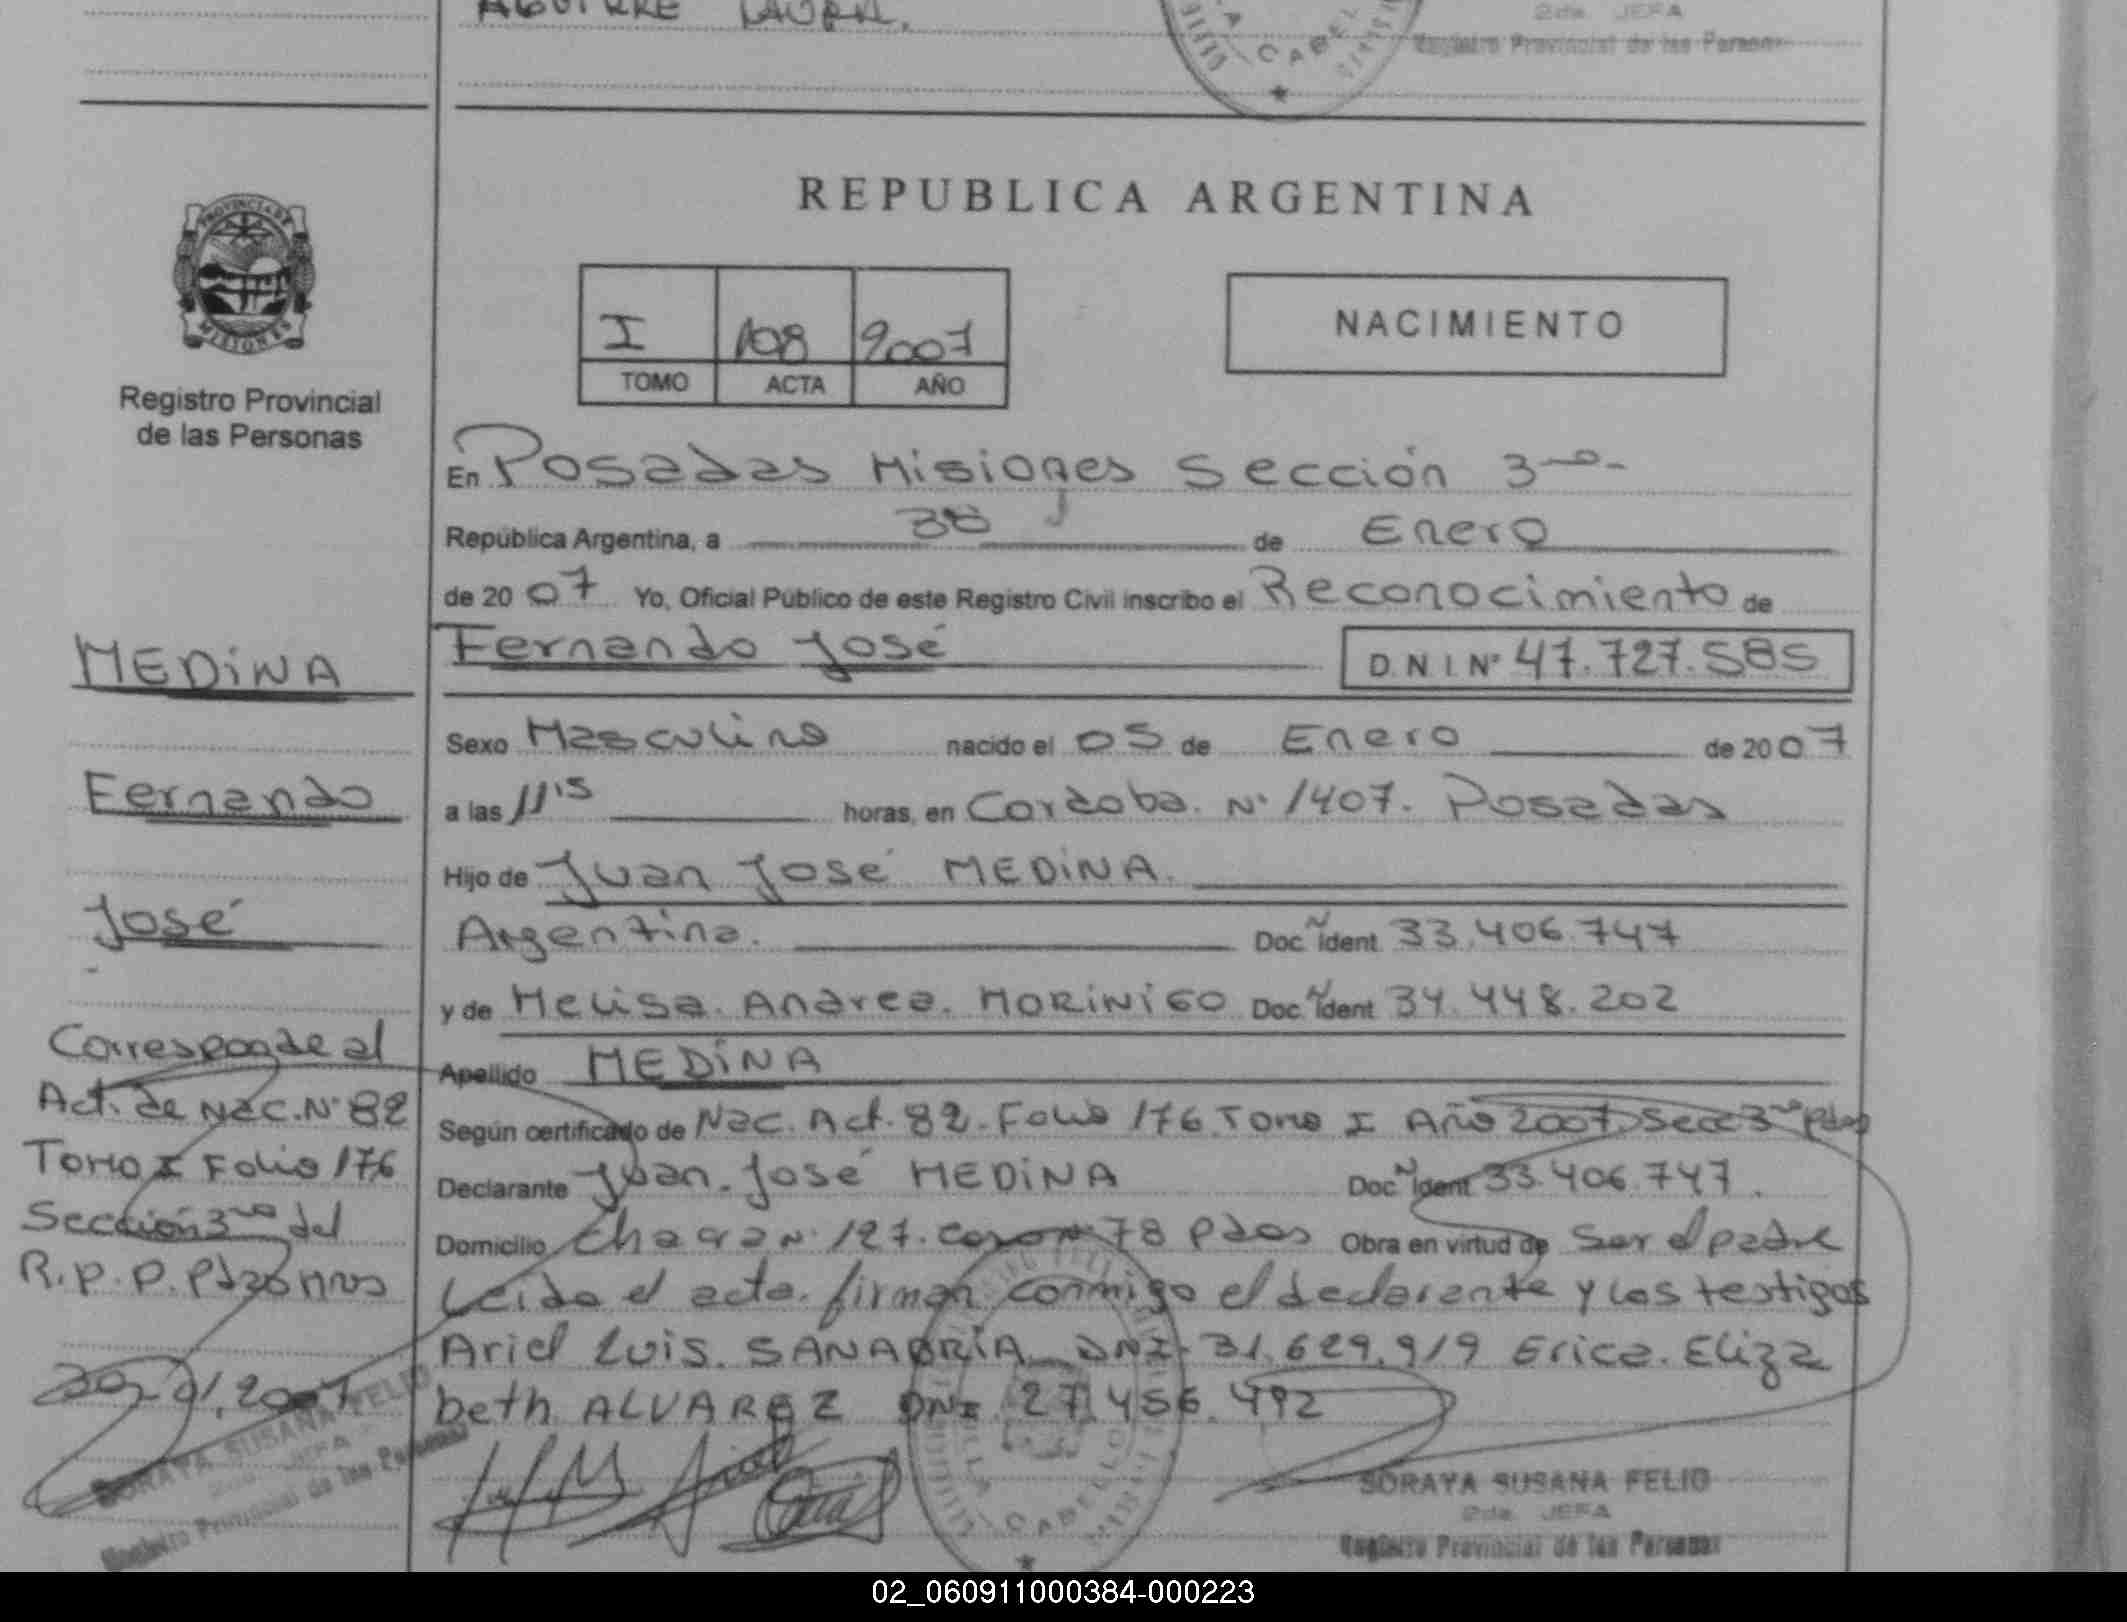 AGUIRRE LAURA.
CABEL
2da. JEFA
Registro Provincial de las Personas
PROVINCIA DE
MISIONES
Registro Provincial
de las Personas
REPUBLICA ARGENTINA
I 108 2007
TOMO ACTA AÑO
NACIMIENTO
En Posadas Misiones Sección 3ra
República Argentina, a de Enero
de 2007 Yo, Oficial Público de este Registro Civil inscribo el Reconocimiento de
Fernando José D.N.I. Nº 47.727.585
Sexo Masculino nacido el 05 de Enero de 2007
a las 11,15 horas, en Cordoba. Nº 1407. Posadas
Hijo de Juan José MEDINA.
Argentina. Doc. Ident. 33.406.747
y de Melisa. Andrea. MORINIGO Doc. Ident. 34.448.202
Apellido MEDINA
Según certificado de Nac. Act. 82. Folio 176. Tomo I Año 2007. Secc 3ra Pdas
Declarante Juan. José MEDINA Doc. Ident. 33.406.747.
Domicilio Chacra Nº 127. 78 Pdas Obra en virtud de Ser el padre
Leida el acta. firman conmigo el declarante y los testigos
Ariel Luis. SANABRIA DNI. 31.629.919 Erica. Eliza
beth ALVAREZ DNI. 27.456.492
MEDINA
Fernando
José
Corresponde al
Act. de Nac. Nº 82
Tomo I Folio 176
Sección 3ra del
R.P.P. Pdas Mnes
2007
SORAYA SUSANA FELIO
2da. JEFA
Registro Provincial de las Personas
CABELLO
SORAYA SUSANA FELIO
2da. JEFA
Registro Provincial de las Personas
02_060911000384-000223